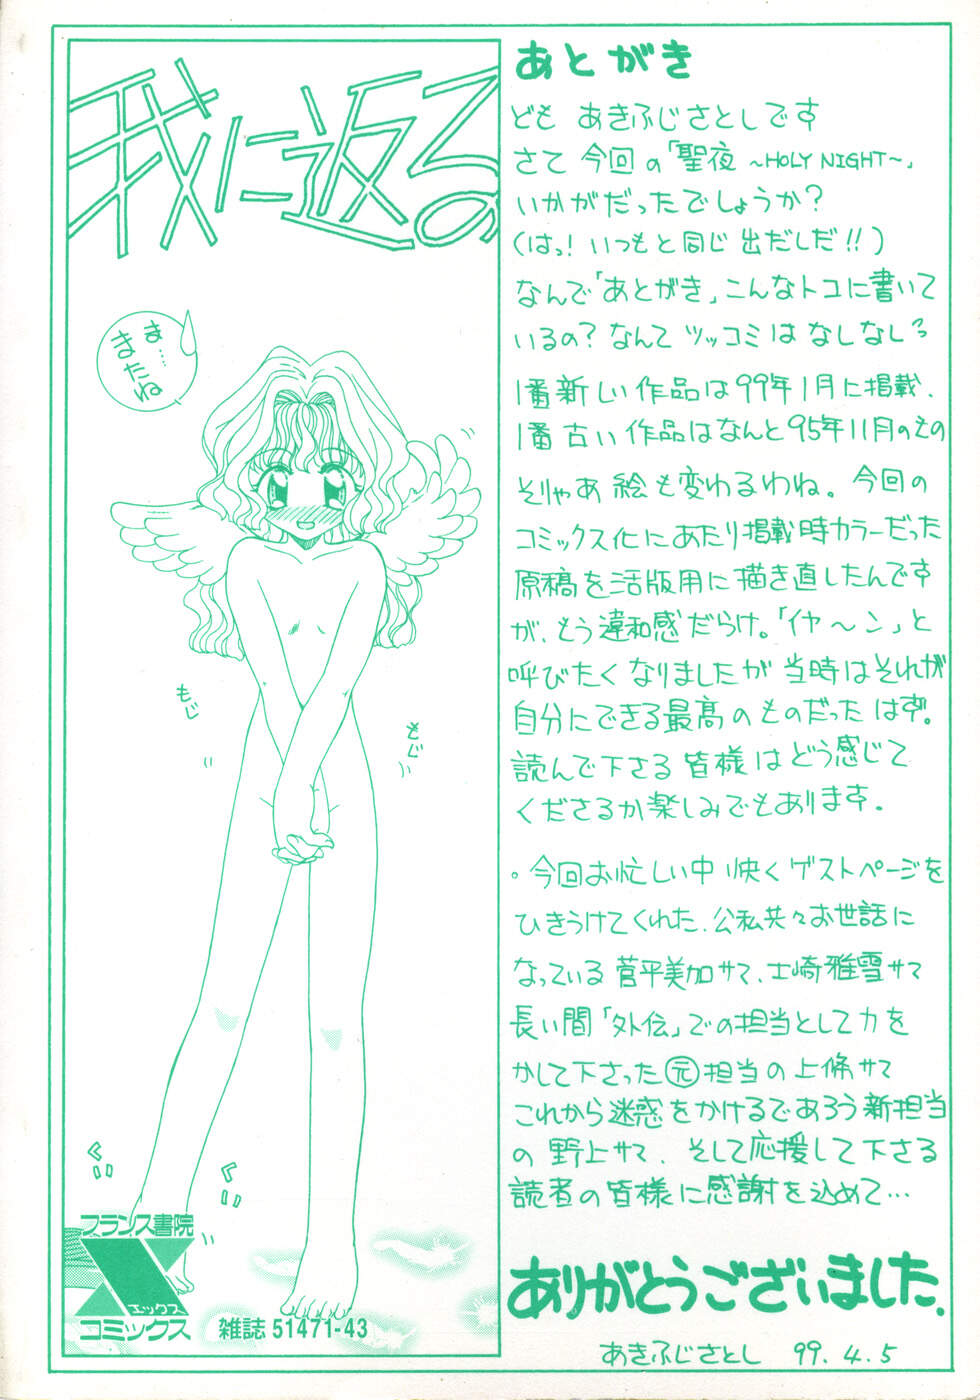 我に返るの
ま…
またね
もじ
もじ
ぐい
ぐい
フランス書院
X
エックス
コミックス
雑誌 51471-43
あとがき
ども あきふじさとしです
さて 今回の「聖夜 ～HOLY NIGHT～」
いかがだったでしょうか?
(はっ! いつもと同じ出だしだ!!)
なんで「あとがき」こんなトコに書いて
いるの? なんて ツッコミは なしなしっ
1番新しい作品は99年1月に掲載、
1番古い作品はなんと95年11月のもの
そりゃあ絵も変わるわね。今回の
コミックス化にあたり掲載時カラーだった
原稿を活版用に描き直したんです
が、もう違和感だらけ。「イヤ～ン」と
呼びたくなりましたが当時はそれが
自分にできる最高のものだったはず。
読んで下さる皆様はどう感じて
くださるか楽しみでもあります。
・今回お忙しい中快くゲストページを
ひきうけてくれた、公私共々お世話に
なっている菅平美加サマ、士崎雅雪サマ
長い間「外伝」での担当として力を
かして下さった元担当の上條サマ
これから迷惑をかけるであろう新担当
の野上サマ、そして応援して下さる
読者の皆様に感謝を込めて…
ありがとうございました.
あきふじさとし 99. 4. 5